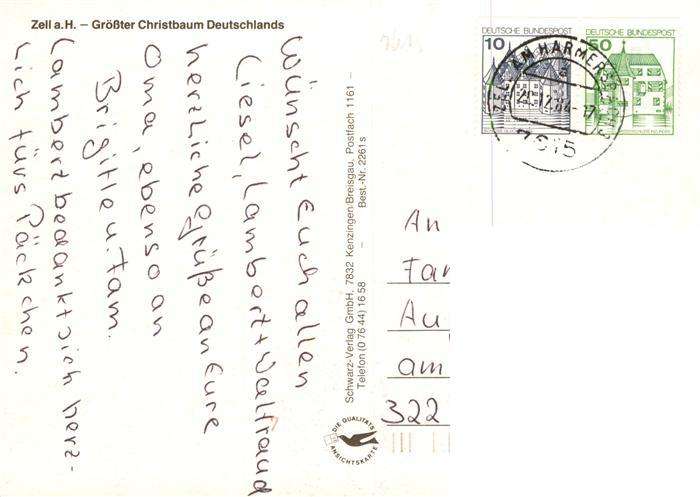 Zell a.H. – Größter Christbaum Deutschlands
Wünscht Euch allen
Liesel, Lambert + Waltraud
herzliche Grüße an Eure
Oma, ebenso an
Brigitte u. Fam.
Lambert bedankt sich herz-
lich fürs Päckchen.
Schwarz-Verlag GmbH, 7832 Kenzingen-Breisgau, Postfach 1161 –
Telefon (0 76 44) 16 58 – Best.-Nr. 2261 s
DIE QUALITÄTS
ANSICHTSKARTE
DEUTSCHE BUNDESPOST
10
DEUTSCHE BUNDESPOST
50
ZELL AM HARMERSBACH
7615
An
Fam
Au
am
322